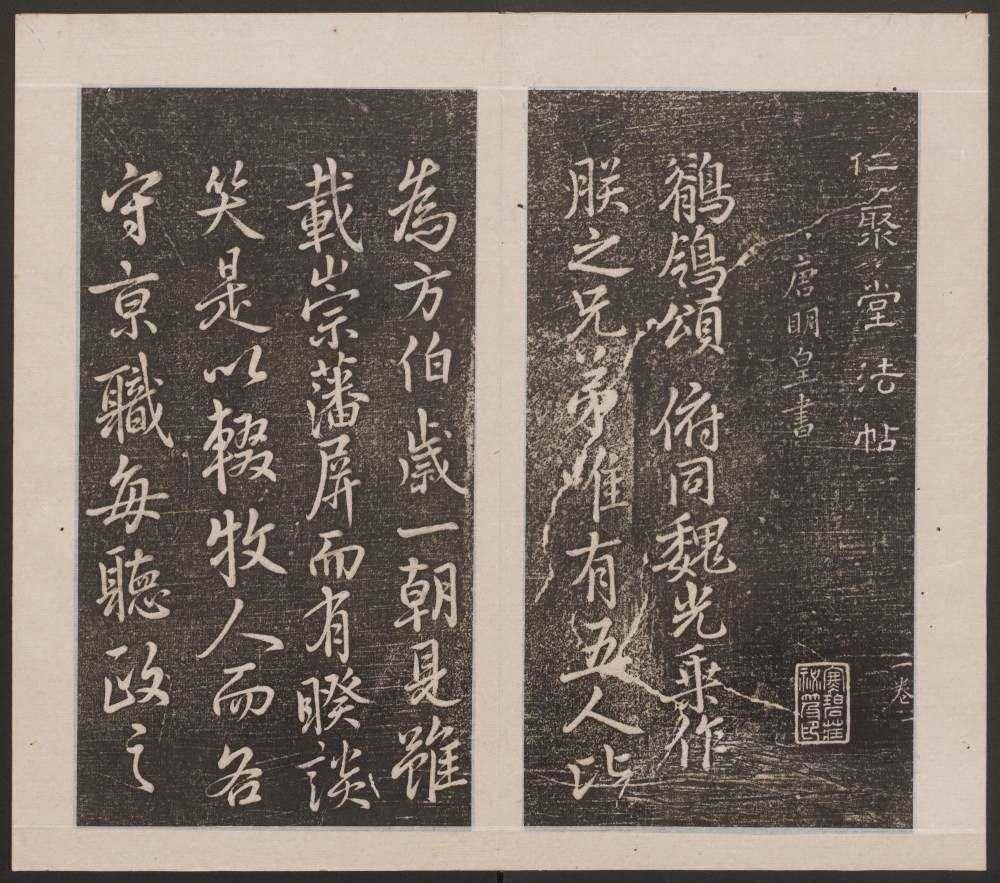 仁聚堂法帖
唐明皇書
二卷
寒碧莊
鶺鴒頌 俯同魏光乘作
朕之兄弟唯有五人比
為方伯歲一朝見雖
載崇藩屏而有睽談
笑是以輟牧人而各
守京職每聽政之